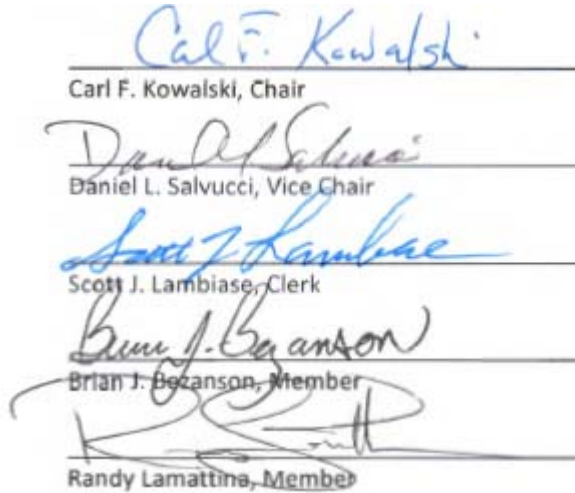 Carl F. Kowalski
Carl F. Kowalski, Chair
Daniel L Salvucci
Daniel L. Salvucci, Vice Chair
Scott J Lambiase
Scott J. Lambiase, Clerk
Brian J. Bezanson
Brian J. Bezanson, Member
Randy Lamattina, Member